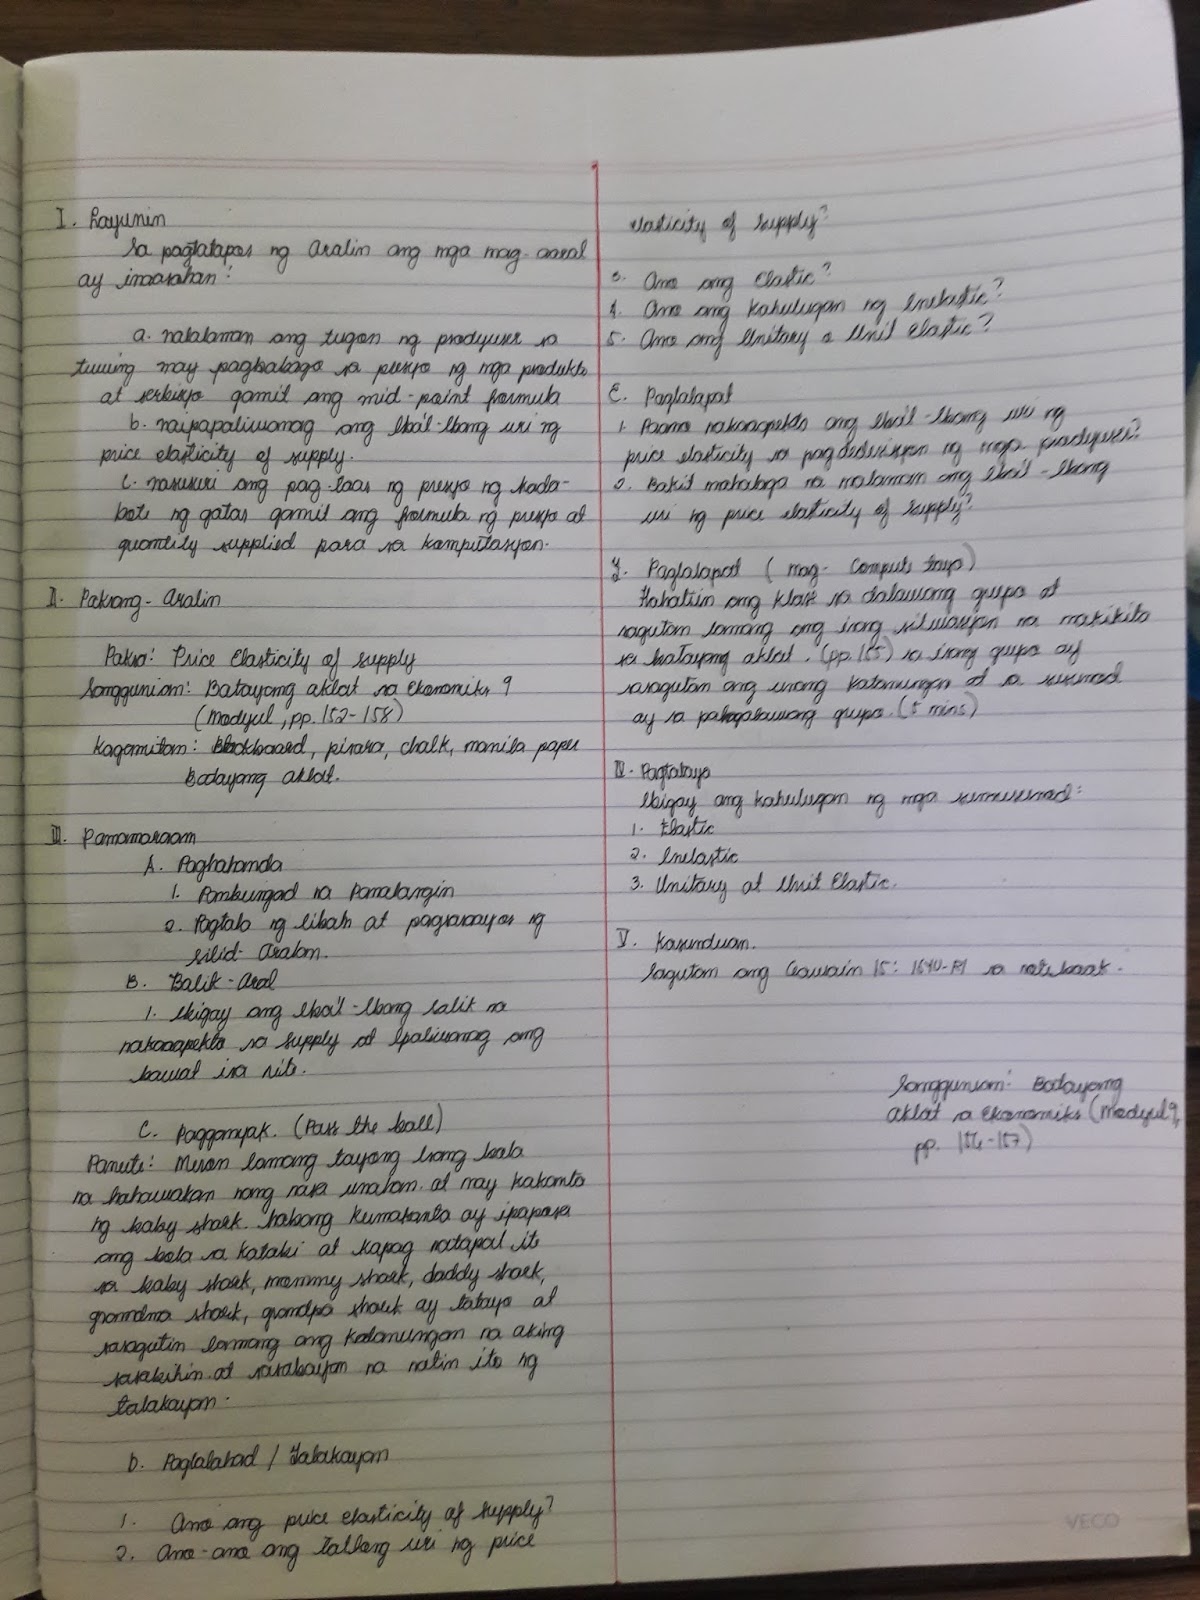 I. Layunin
Sa pagtatapos ng Aralin ang mga mag-aaral
ay inaasahan:
a. nalalaman ang tugon ng prodyuser sa
tuwing may pagbabago sa presyo ng mga produkto
at serbisyo gamit ang mid-point formula
b. naipapaliwanag ang Iba't-Ibang uri ng
price elasticity of supply.
c. nasusuri ang pag-taas ng presyo ng kada-
bote ng gatas gamit ang formula ng presyo at
quantity supplied para sa komputasyon.
II. Paksang-Aralin
Paksa: Price Elasticity of supply
Sanggunian: Batayang aklat sa Ekonomiks 9
(Modyul, pp. 152-158)
Kagamitan: blackboard, pisara, chalk, manila paper
Batayang aklat.
III. Pamamaraan
A. Paghahanda
1. Pambungad na Panalangin
2. Pagtala ng liban at pagsasaayos ng
silid-Aralan.
B. Balik-Aral
1. Ibigay ang Iba't-Ibang salik na
nakaaapekto sa supply at Ipaliwanag ang
bawat isa nito.
C. Pagganyak. (Pass the ball)
Panuto: Meron lamang tayong isang bola
na hahawakan nang nasa unahan at may kakanta
ng baby shark. habang kumakanta ay ipapasa
ang bola sa katabi at kapag natapat ito
sa baby shark, mommy shark, daddy shark,
grandma shark, grandpa shark ay tatayo at
sasagutin lamang ang katanungan na aking
sasabihin at sasabayan na natin ito ng
talakayan.
D. Paglalahad / Talakayan
1. Ano ang price elasticity of supply?
2. Ano-ano ang tatlong uri ng price
elasticity of supply?
3. Ano ang Elastic?
4. Ano ang kahulugan ng Inelastic?
5. Ano ang Unitary o Unit Elastic?
E. Paglalapat
1. Paano nakaaapekto ang Iba't-Ibang uri ng
price elasticity sa pagdedesisyon ng mga prodyuser?
2. Bakit mahalaga na malaman ang Iba't-Ibang
uri ng price elasticity of supply?
F. Paglalapat (Mag-Compute tayo)
Hahatiin ang klase sa dalawang grupo at
sagutan lamang ang isang sitwasyon na makikita
sa batayang aklat. (pp. 155) sa isang grupo ay
sasagutan ang unang katanungan at sa sumunod
ay sa pangalawang grupo. (5 mins)
IV. Pagtataya
Ibigay ang kahulugan ng mga sumusunod:
1. Elastic
2. Inelastic
3. Unitary at Unit Elastic.
V. Kasunduan.
Sagutan ang Gawain 15: sa notebook.
Sanggunian: Batayang
aklat sa Ekonomiks (Modyul 9,
pp. 156-157)
VECO